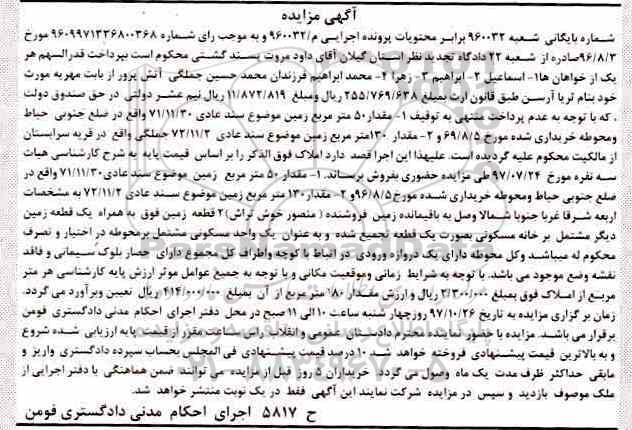 آگهی مزایده
شماره بایگانی شعبه ۹۶۰۰۳۲ برابر محتویات پرونده اجرایی م/۹۶۰۰۳۲ و به موجب رای شماره ۹۶۰۹۹۷۱۳۳۶۸۰۰۳۶۸ مورخ
۹۶/۸/۳ صادره از شعبه ۲۲ دادگاه تجدید نظر استان گیلان آقای داود مروت پسند گشتی محکوم است بپرداخت قدرالسهم هر
یک از خواهان ها ۱- اسماعیل ۲- ابراهیم ۳- زهرا ۴- محمد ابراهیم فرزندان محمد حسین جملگی آتش پرور از بابت مهریه مورث
خود بنام ثریا آرسن طبق قانون ارث بمبلغ ۲۵۵/۷۶۹/۶۳۸ ریال ومبلغ ۱۱/۸۷۲/۸۱۹ ریال نیم عشر دولتی در حق صندوق دولت
. که با توجه به عدم پرداخت منتهی به توقیف ۱- مقدار ۵۰ متر مربع زمین موضوع سند عادی ۷۱/۱۱/۳۰ واقع در ضلع جنوبی حیاط
ومحوطه خریداری شده مورخ ۶۹/۸/۵ و ۲- مقدار ۱۳۰ متر مربع زمین موضوع سند عادی ۷۲/۱۱/۲ جملگی واقع در قریه سرابستان
از مالکیت محکوم علیه گردیده است. علیهذا این اجرا قصد دارد املاک فوق الذکر را بر اساس قیمت پایه به شرح کارشناسی هیات
سه نفره مورخ ۹۷/۰۷/۲۴ طی مزایده حضوری بفروش برساند. ۱- مقدار ۵۰ متر مربع زمین موضوع سند عادی ۷۱/۱۱/۳۰ واقع در
ضلع جنوبی حیاط ومحوطه خریداری شده مورخ ۹۶/۸/۵ و ۲- مقدار ۱۳۰ متر مربع زمین موضوع سند عادی ۷۲/۱۱/۲ به مشخصات
اربعه شرقا غربا جنوبا شمالا وصل به باقیمانده زمین فروشنده ( منصور خوش تراش) ۲ قطعه زمین فوق به همراه یک قطعه زمین
دیگر مشتمل بر خانه مسکونی بصورت یک قطعه تجمیع شده و به عنوان یک واحد مسکونی مشتمل برمحوطه در اختیار و تصرف
محکوم له میباشد وکل محوطه دارای یک دروازه ورودی در انتها با کوچه واطراف کل مجموع دارای حصار بلوک سیمانی و فاقد
نقشه وضع موجود می باشد. با توجه به شرایط زمانی وموقعیت مکانی و با توجه به جمیع عوامل موثر ارزش پایه کارشناسی هر متر
مربع از املاک فوق بمبلغ ۲/۳۰۰/۰۰۰ ریال و ارزش مقدار ۱۸۰ متر مربع از آن بمبلغ ۴۱۴/۰۰۰/۰۰۰ ریال تعیین وبرآورد می گردد.
زمان برگزاری مزایده به تاریخ ۹۷/۱۰/۲۶ روز چهار شنبه ساعت ۱۰ الی ۱۱ صبح در محل دفتر اجرای احکام مدنی دادگستری فومن
برقرار می باشد. مزایده با حضور نماینده محترم دادستان عمومی و انقلاب راس ساعت مقرر از قیمت پایه ارزیابی شده شروع
و به بالاترین قیمت پیشنهادی فروخته خواهد شد ۱۰ درصد قیمت پیشنهادی فی المجلس بحساب سپرده دادگستری واریز و
مابقی حداکثر ظرف مدت یک ماه وصول می گردد. خریداران ۵ روز قبل از مزایده می توانند ضمن هماهنگی با دفتر اجرایی از
ملک موصوف بازدید و سپس در مزایده شرکت نمایند این آگهی فقط در یک نوبت منتشر خواهد شد.
ح ۵۸۱۷ اجرای احکام مدنی دادگستری فومن